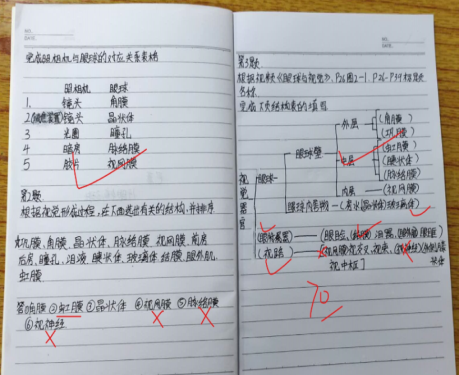 NO.
DATE.
完成照相机与眼球的对应关系表格
照相机 眼球
1. 镜头 角膜
2 镜头 晶状体
3 光圈 瞳孔
4 暗房 脉络膜
5 胶片 视网膜
第2题
根据视觉形成过程,在下面选出有关的结构,并排序
巩膜,角膜,晶状体,脉络膜,视网膜,前房
后房,瞳孔,泪液,睫状体,玻璃体 结膜,眼外肌,
虹膜
①角膜 ②虹膜 ③晶状体 ④视网膜 ⑤脉络膜
⑥视神经
NO.
DATE.
第3题
根据视频《眼球与视觉》,
名称
完成下页结构表的填写
视觉器官
眼球
眼球壁
外层
(角膜)
(巩膜)
中层
(虹膜)
(睫状体)
(脉络膜)
内层 (视网膜)
眼球内容物 (房水)(晶状体)(玻璃体)
(眼附属器) (眼睑,结膜,泪器,
(视路)
视中枢]
70